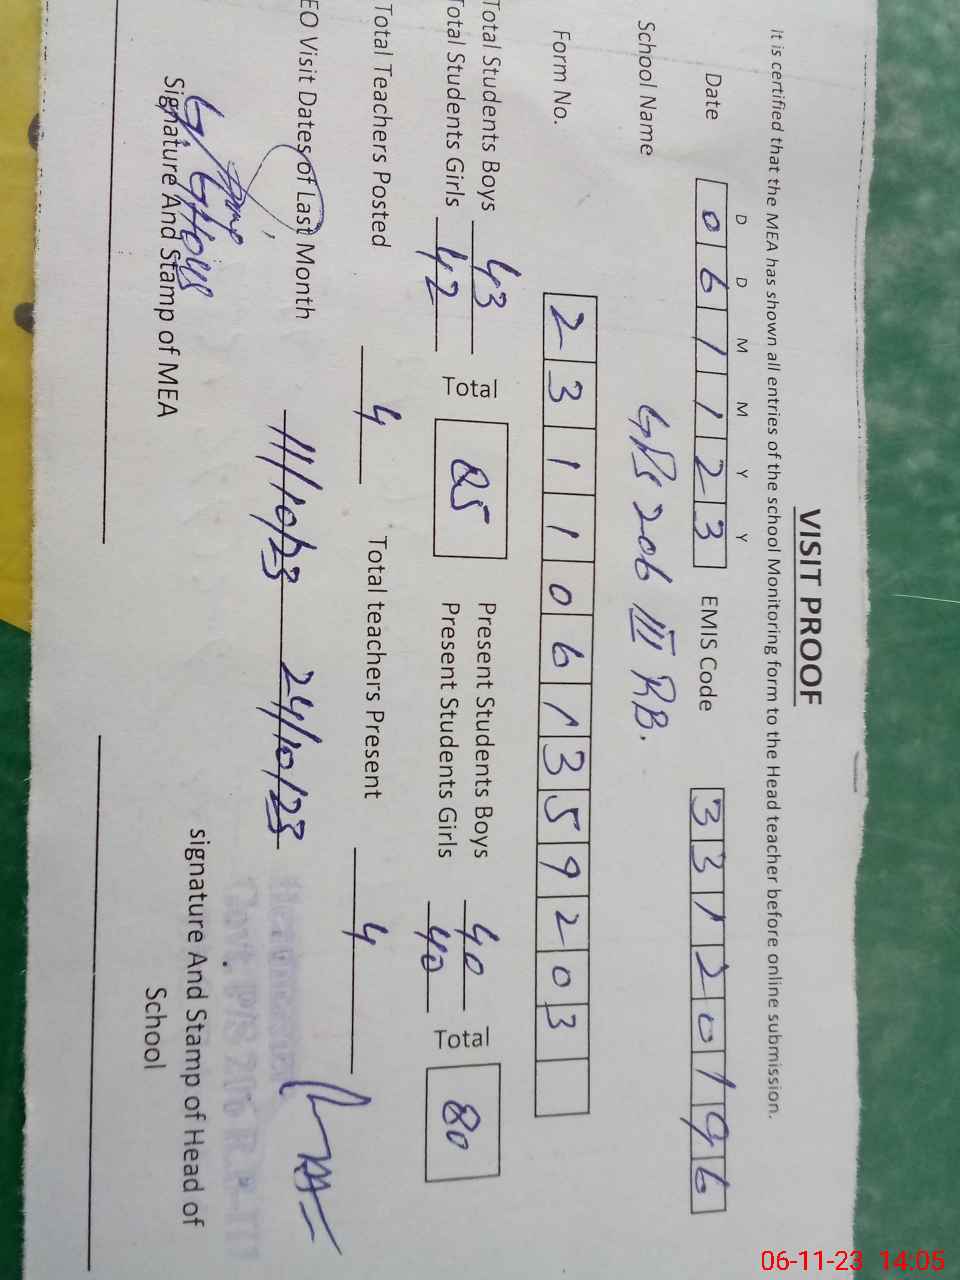 VISIT PROOF
It is certified that the MEA has shown all entries of the school Monitoring form to the Head teacher before online submission.
D D M M Y Y
Date 0 6 1 1 2 3 EMIS Code 3 3 1 2 0 1 9 6
School Name GPS 206 III RB.
Form No. 2 3 1 1 0 6 1 3 5 9 2 0 3
Total Students Boys 43 Total 85 Present Students Boys 40 Total 80
Total Students Girls 42 Present Students Girls 40
Total Teachers Posted 4 Total teachers Present 4
EO Visit Dates of Last Month 11/10/23 24/10/23
Headmaster
Govt. P/S 206 R.B-III
Signature And Stamp of MEA
signature And Stamp of Head of
School
06-11-23 14:05